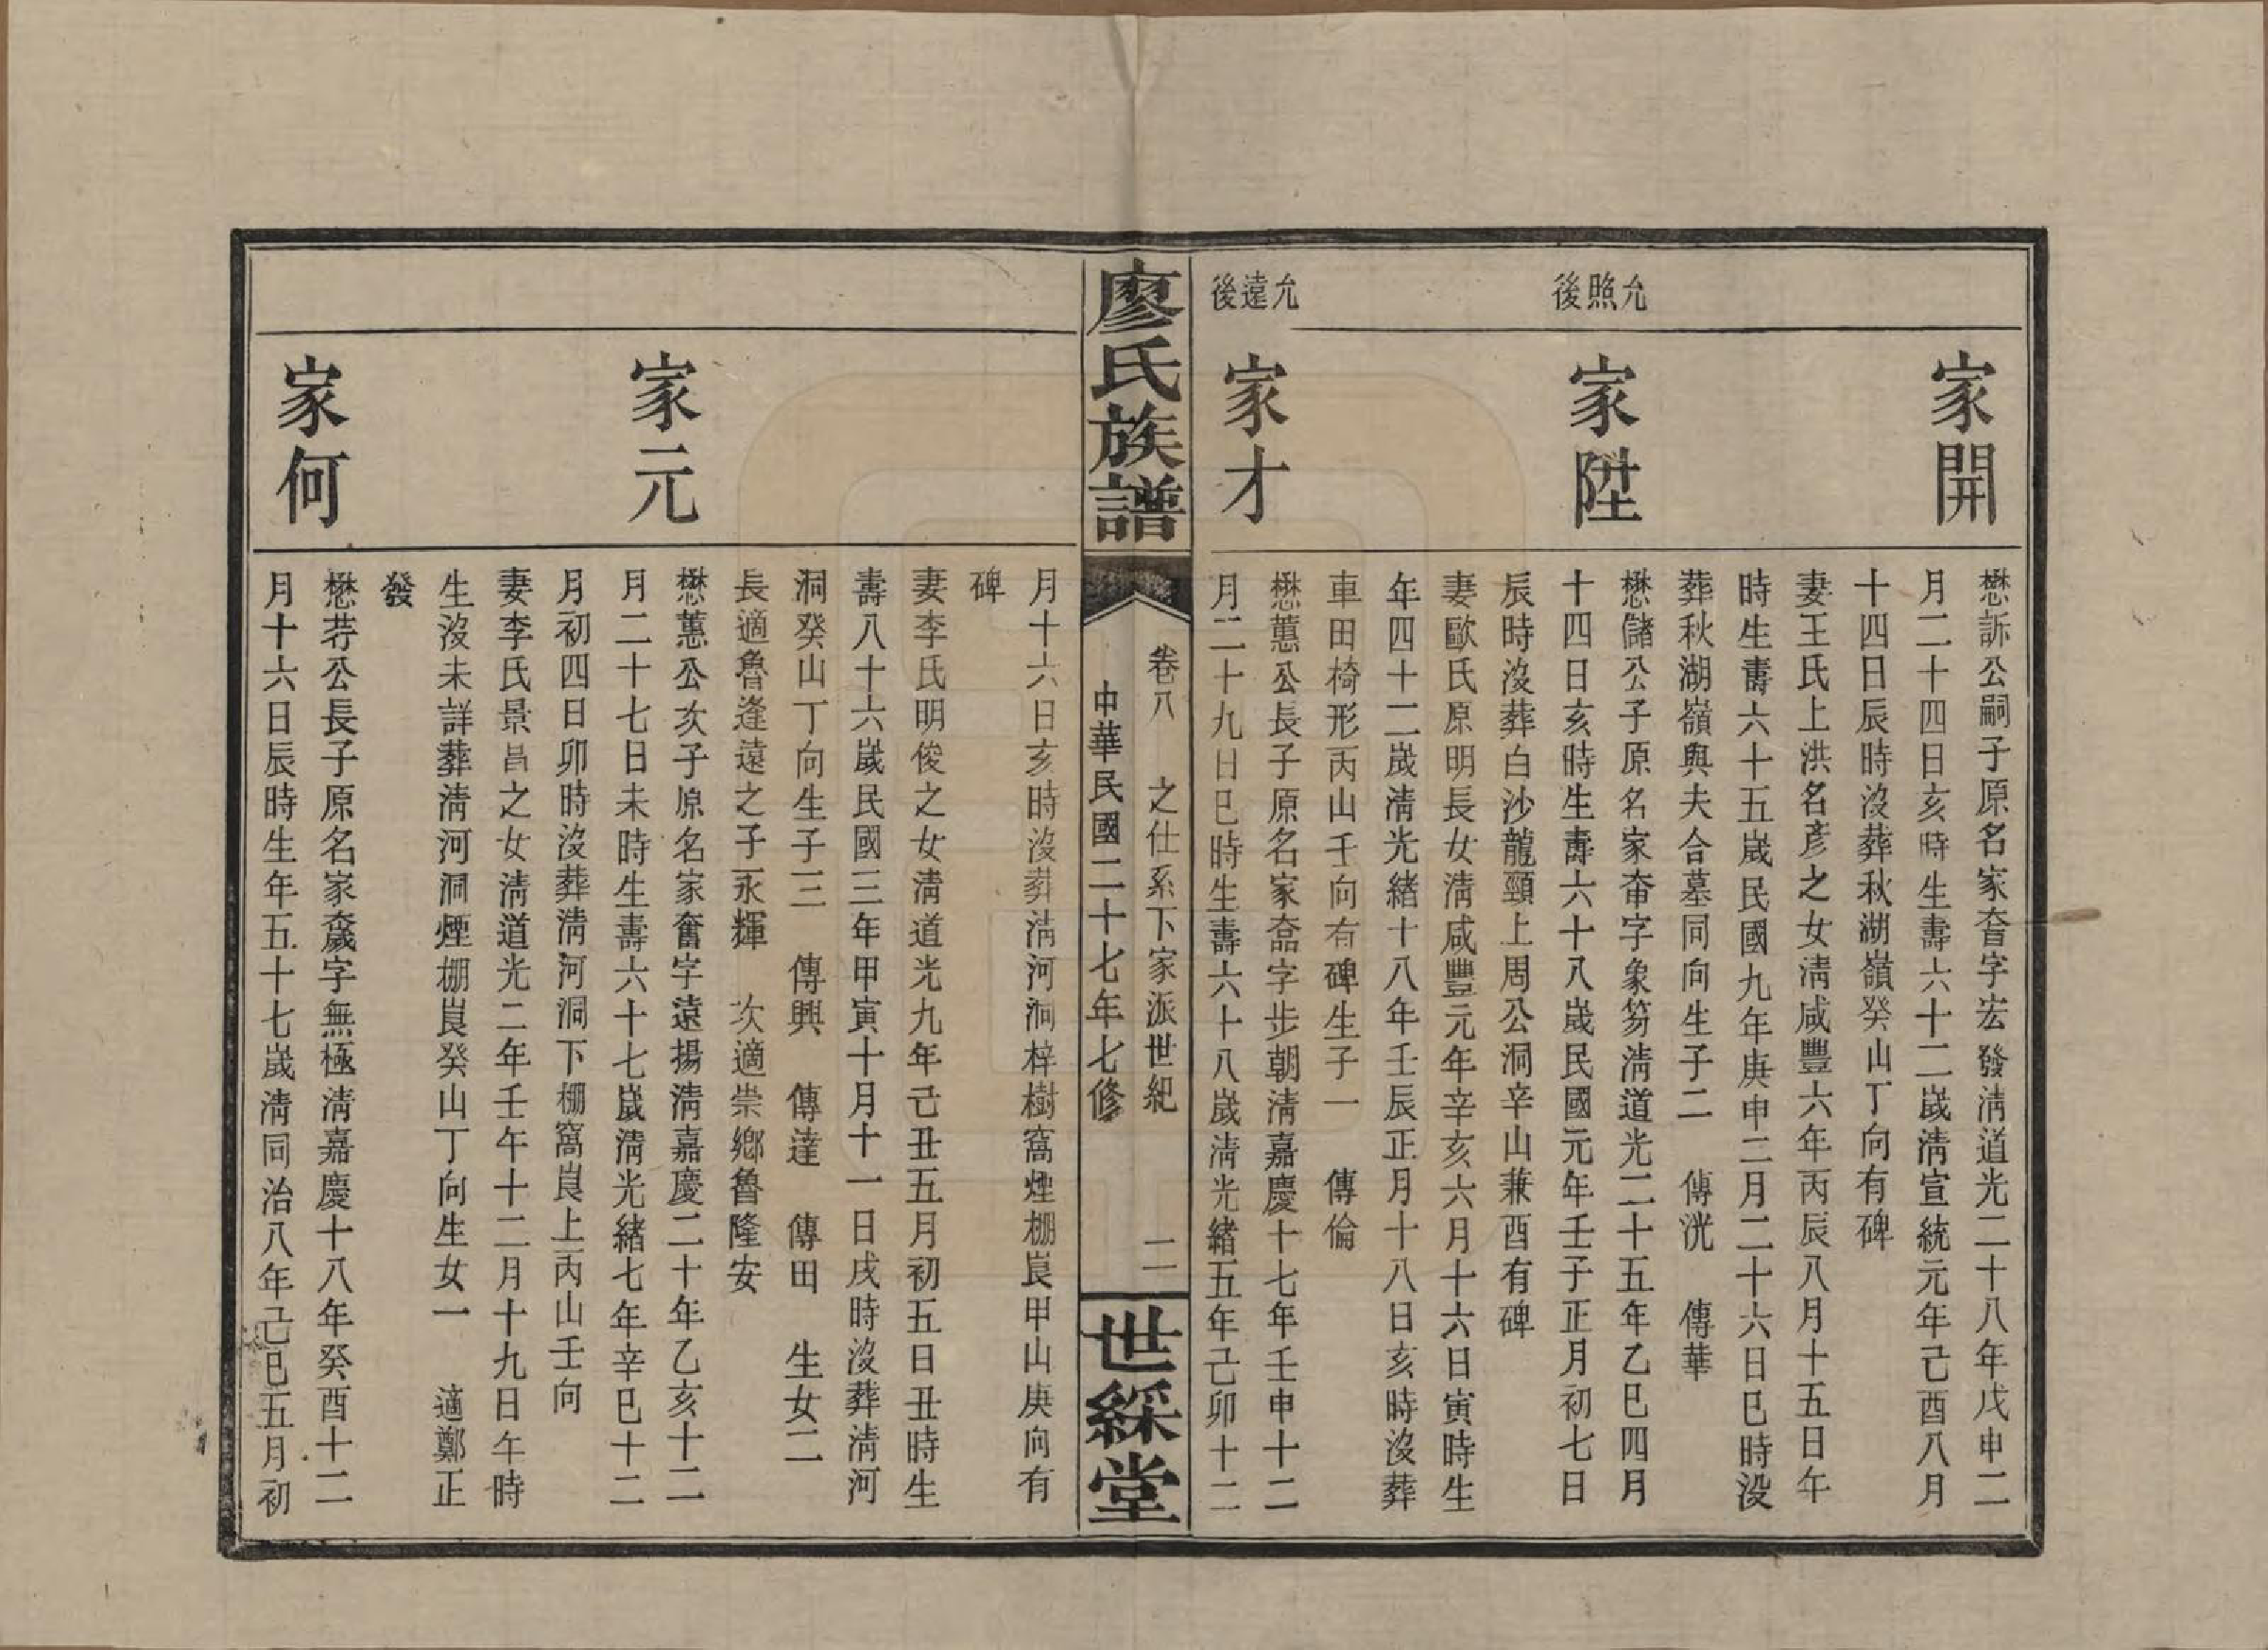 家開
懋訴公嗣子原名家奋字宏發淸道光二十八年戊申二
月二十四日亥時生壽六十二歲淸宣統元年己酉八月
十四日辰時沒葬秋湖嶺癸山丁向有碑
妻王氏上洪名彥之女淸咸豐六年丙辰八月十五日午
時生壽六十五歲民國九年庚申二月二十六日巳時沒
葬秋湖嶺與夫合墓同向生子二　傳洸　傳華
允照後
家陞
懋儲公子原名家奋字象笏淸道光二十五年乙巳四月
十四日亥時生壽六十八歲民國元年壬子正月初七日
辰時沒葬白沙龍頸上周公洞辛山兼酉有碑
妻歐氏原明長女淸咸豐元年辛亥六月十六日寅時生
年四十二歲淸光緒十八年壬辰正月十八日亥時沒葬
車田椅形丙山壬向有碑生子一　傳倫
允遠後
家才
懋蕙公長子原名家字步朝淸嘉慶十七年壬申十二
月二十九日巳時生壽六十八歲淸光緒五年己卯十二
廖氏族譜
卷八　之仕系下家派世紀　二
中華民國二十七年七修
世綵堂
月十六日亥時沒葬淸河洞梓樹窩煙棚崀甲山庚向有
碑
妻李氏明俊之女淸道光九年己丑五月初五日丑時生
壽八十六歲民國三年甲寅十月十一日戌時沒葬淸河
洞癸山丁向生子三　傳興　傳達　傳田　生女二
長適魯逢遠之子永輝　次適崇鄉魯隆安
家元
懋蕙公次子原名家奮字遠揚淸嘉慶二十年乙亥十二
月二十七日未時生壽六十七歲淸光緒七年辛巳十二
月初四日卯時沒葬淸河洞下棚窩崀上丙山壬向
妻李氏景昌之女淸道光二年壬午十二月十九日午時
生沒未詳葬淸河洞煙棚崀癸山丁向生女一　適鄭正
發
家何
懋荐公長子原名家字無極淸嘉慶十八年癸酉十二
月十六日辰時生年五十七歲淸同治八年己巳五月初